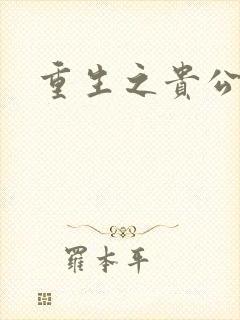 重生之貴公
羅本平